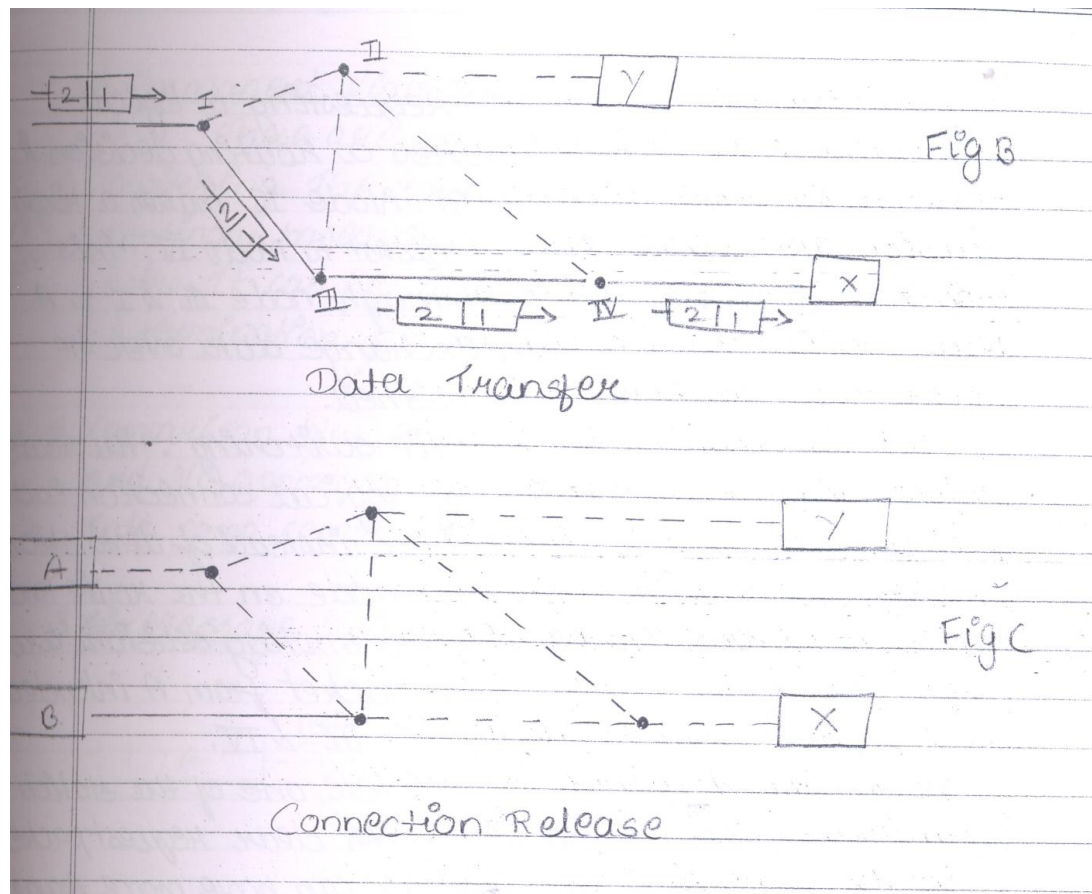 II
Y
2 1
I
Fig B
2 1
X
III
2 1
IV
2 1
Data Transfer
Y
A
Fig C
B
X
Connection Release